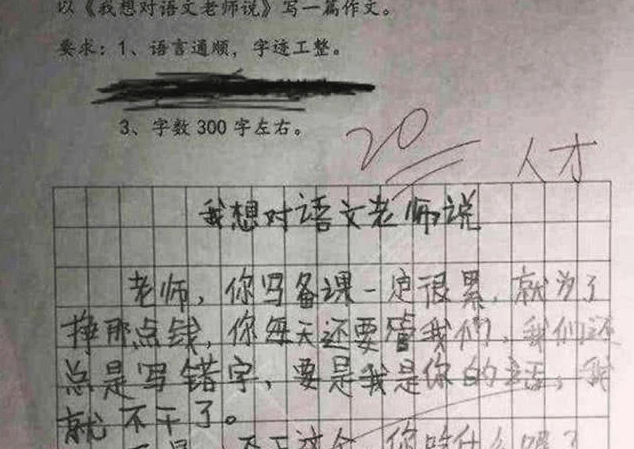 以《我想对语文老师说》写一篇作文。
要求：1、语言通顺，字迹工整。
3、字数300字左右。
20 人才
我想对语文老师说
老师，你写备课一定很累，就为了
挣那点钱，你每天还要管我们，我们还
总是写错字，要是我是你的话，我
就不干了。
可是，不干这个，你吃什么呢？